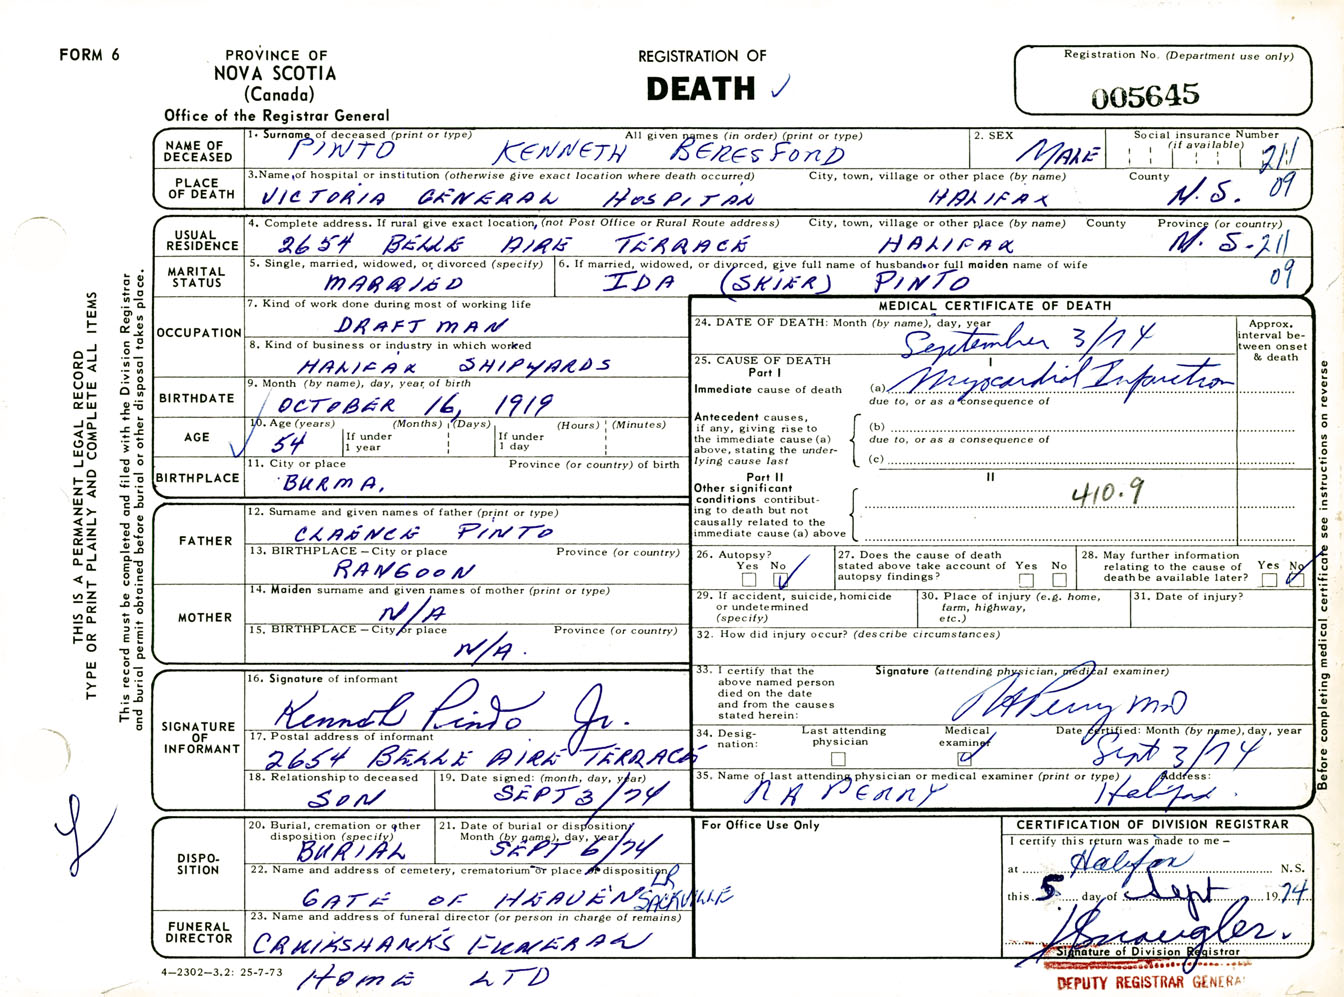 FORM 6
PROVINCE OF
NOVA SCOTIA
(Canada)
Office of the Registrar General
REGISTRATION OF
DEATH ✓
Registration No. (Department use only)
005645
NAME OF DECEASED
1. Surname of deceased (print or type) All given names (in order) (print or type)
PINTO KENNETH BERESFORD
2. SEX
MALE
Social insurance Number (if available)
211
09
PLACE OF DEATH
3. Name of hospital or institution (otherwise give exact location where death occurred) City, town, village or other place (by name) County
VICTORIA GENERAL HOSPITAL HALIFAX N.S.
USUAL RESIDENCE
4. Complete address. If rural give exact location, (not Post Office or Rural Route address) City, town, village or other place (by name) County Province (or country)
2654 BELLE AIRE TERRACE HALIFAX N.S. 211
09
MARITAL STATUS
5. Single, married, widowed, or divorced (specify)
MARRIED
6. If married, widowed, or divorced, give full name of husband or full maiden name of wife
IDA (SKIER) PINTO
OCCUPATION
7. Kind of work done during most of working life
DRAFTMAN
8. Kind of business or industry in which worked
HALIFAX SHIPYARDS
BIRTHDATE
9. Month (by name), day, year of birth
OCTOBER 16, 1919
AGE
10. Age (years) (Months) (Days) (Hours) (Minutes)
54 If under 1 year If under 1 day
BIRTHPLACE
11. City or place Province (or country) of birth
BURMA.
FATHER
12. Surname and given names of father (print or type)
CLAENCE PINTO
13. BIRTHPLACE – City or place Province (or country)
RANGOON
MOTHER
14. Maiden surname and given names of mother (print or type)
N/A
15. BIRTHPLACE – City or place Province (or country)
N/A.
SIGNATURE OF INFORMANT
16. Signature of informant
Kenneth Pinto Jr.
17. Postal address of informant
2654 BELLE AIRE TERRACE
18. Relationship to deceased
SON
19. Date signed: (month, day, year)
SEPT 3/74
DISPO-
SITION
20. Burial, cremation or other disposition (specify)
BURIAL
21. Date of burial or disposition Month (by name), day, year
SEPT 6/74
22. Name and address of cemetery, crematorium or place of disposition
GATE OF HEAVEN LR SACKVILLE
FUNERAL DIRECTOR
23. Name and address of funeral director (or person in charge of remains)
CRUIKSHANKS FUNERAL
HOME LTD
4–2302–3.2: 25-7-73
MEDICAL CERTIFICATE OF DEATH
24. DATE OF DEATH: Month (by name), day, year
September 3/74
Approx. interval between onset & death
25. CAUSE OF DEATH
Part I
I
Immediate cause of death
(a) Myocardial Infarction
due to, or as a consequence of
Antecedent causes, if any, giving rise to the immediate cause (a) above, stating the underlying cause last
(b)
due to, or as a consequence of
(c)
Part II
II
Other significant conditions contributing to death but not causally related to the immediate cause (a) above
410.9
26. Autopsy?
Yes No ✓
27. Does the cause of death stated above take account of autopsy findings?
Yes No
28. May further information relating to the cause of death be available later?
Yes No ✓
29. If accident, suicide, homicide or undetermined (specify)
30. Place of injury (e.g. home, farm, highway, etc.)
31. Date of injury?
32. How did injury occur? (describe circumstances)
33. I certify that the above named person died on the date and from the causes stated herein:
Signature (attending physician, medical examiner)
R A Perry MD
34. Designation:
Last attending physician
Medical examiner ✓
Date certified: Month (by name), day, year
Sept 3/74
35. Name of last attending physician or medical examiner (print or type) Address:
R A PERRY Halifax.
For Office Use Only
CERTIFICATION OF DIVISION REGISTRAR
I certify this return was made to me –
at Halifax N.S.
this 5 day of Sept 1974
Signature of Division Registrar
DEPUTY REGISTRAR GENERA
THIS IS A PERMANENT LEGAL RECORD
TYPE OR PRINT PLAINLY AND COMPLETE ALL ITEMS
This record must be completed and filed with the Division Registrar
and burial permit obtained before burial or other disposal takes place.
Before completing medical certificate see instructions on reverse